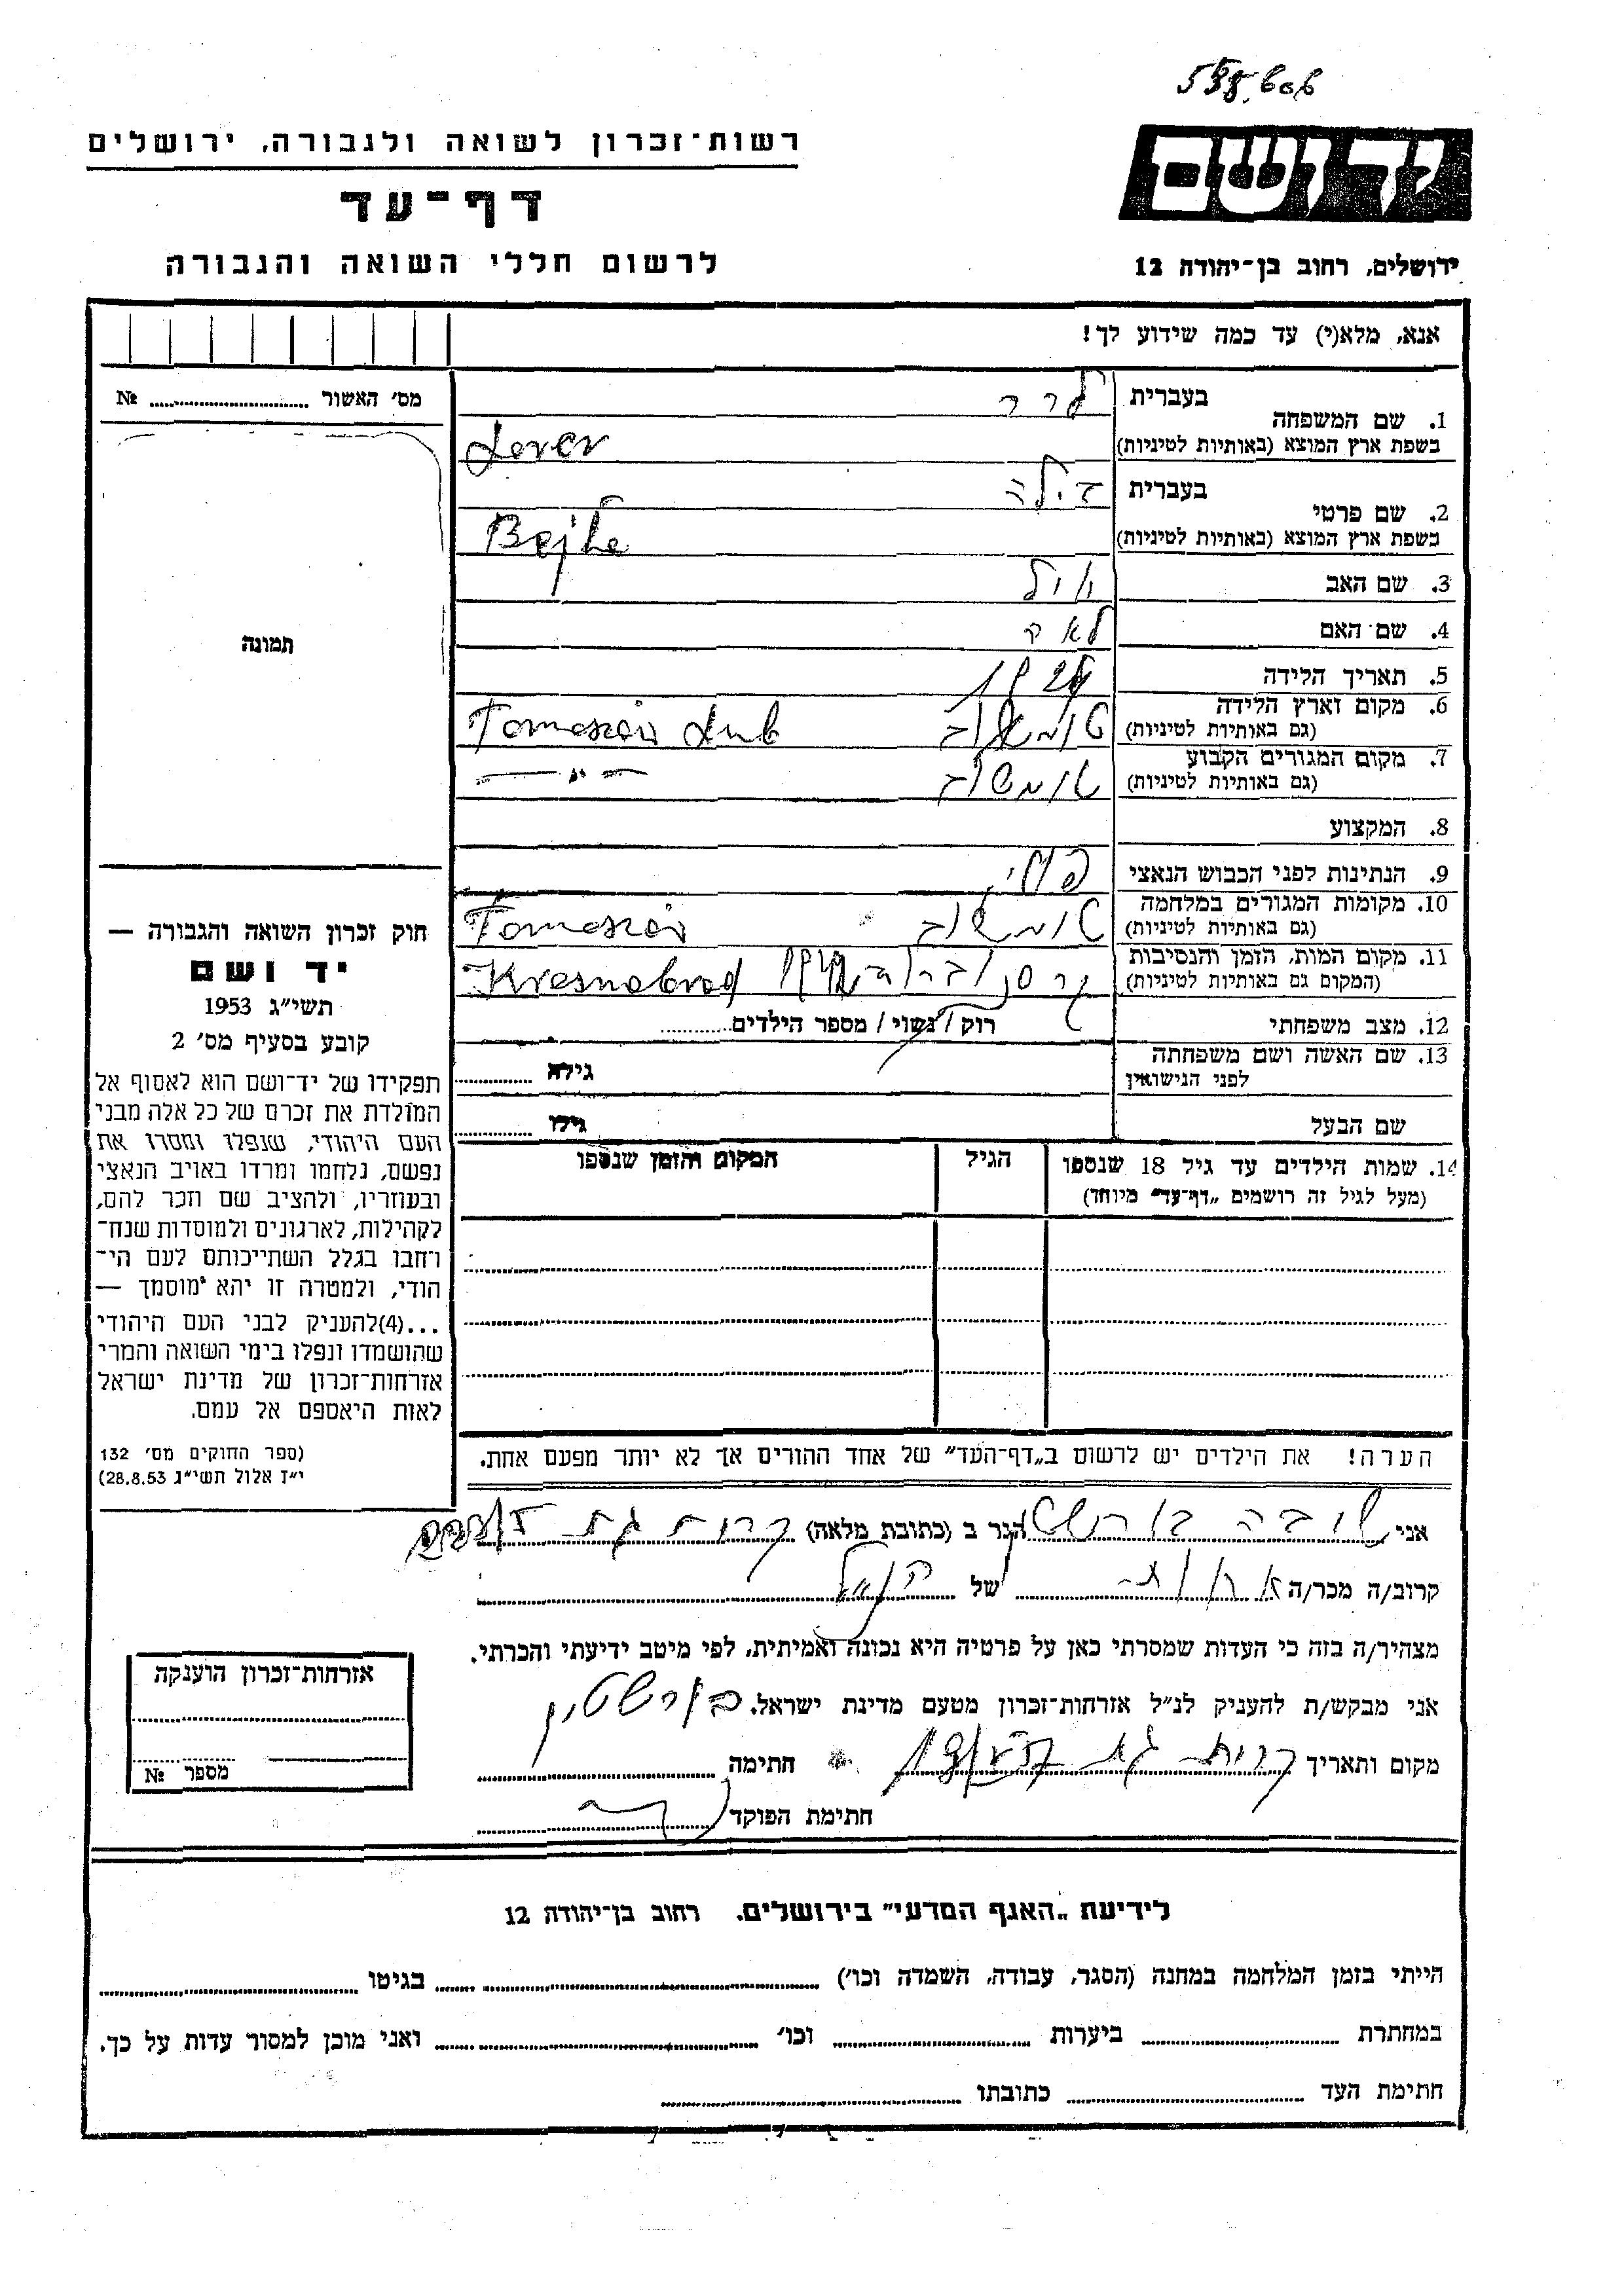 רשות־זכרון לשואה ולגבורה, ירושלים
דף־עד
לרשום חללי השואה והגבורה
יד ושם
ירושלים, רחוב בן־יהודה 12
אנא, מלא(י) עד כמה שידוע לך!
מס׳ האשור № 
תמונה
1. שם המשפחה בעברית לרר
בשפת ארץ המוצא (באותיות לטיניות) Lerer
2. שם פרטי בעברית בילה
בשפת ארץ המוצא (באותיות לטיניות) Bejle
3. שם האב
4. שם האם
5. תאריך הלידה
6. מקום וארץ הלידה
(גם באותיות לטיניות) Tomaszów Lub
7. מקום המגורים הקבוע
(גם באותיות לטיניות) טומשוב — " —
8. המקצוע
9. הנתינות לפני הכבוש הנאצי
10. מקומות המגורים במלחמה
(גם באותיות לטיניות) טומשוב Tomaszów
11. מקום המות, הזמן והנסיבות
(המקום גם באותיות לטיניות) Kresnobrod
12. מצב משפחתי רוק / נשוי / מספר הילדים
13. שם האשה ושם משפחתה
לפני הנישואין גילה
שם הבעל גילו
14. שמות הילדים עד גיל 18 שנספו הגיל המקום והזמן שנספו
(מעל לגיל זה רושמים „דף־עד” מיוחד)
הערה! את הילדים יש לרשום ב„דף־העד” של אחד ההורים אך לא יותר מפעם אחת.
חוק זכרון השואה והגבורה —
יד ושם
תשי״ג 1953
קובע בסעיף מס׳ 2
תפקידו של יד־ושם הוא לאסוף אל
המולדת את זכרם של כל אלה מבני
העם היהודי, שנפלו ומסרו את
נפשם, נלחמו ומרדו באויב הנאצי
ובעוזריו, ולהציב שם וזכר להם,
לקהילות, לארגונים ולמוסדות שנח־
רחבו בגלל השתייכותם לעם הי־
הודי, ולמטרה זו יהא מוסמך —
...(4)להעניק לבני העם היהודי
שהושמדו ונפלו בימי השואה והמרי
אזרחות־זכרון של מדינת ישראל
לאות היאספם אל עמם.
(ספר החוקים מס׳ 132
י״ז אלול תשי״ג 28.8.53)
אני הגר ב (כתובת מלאה) קרית גת
קרוב/ה מכר/ה של
מצהיר/ה בזה כי העדות שמסרתי כאן על פרטיה היא נכונה ואמיתית, לפי מיטב ידיעתי והכרתי.
אני מבקש/ת להעניק לנ״ל אזרחות־זכרון מטעם מדינת ישראל.
מקום ותאריך קרית גת חתימה בורשטין
חתימת הפוקד
אזרחות־זכרון הוענקה
מספר №
לידיעת „האגף המדעי” בירושלים. רחוב בן־יהודה 12
הייתי בזמן המלחמה במחנה (הסגר, עבודה, השמדה וכו׳) בגיטו
במחתרת ביערות וכו׳ ואני מוכן למסור עדות על כך.
חתימת העד כתובתו